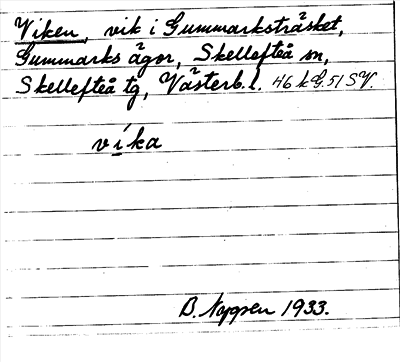 Viken, vik i Gummarksträsket,
Gummarks ägor, Skellefteå sn,
Skellefteå tg, Västerb. l. 46 k G. 51 SV.
víka
B. 1933.